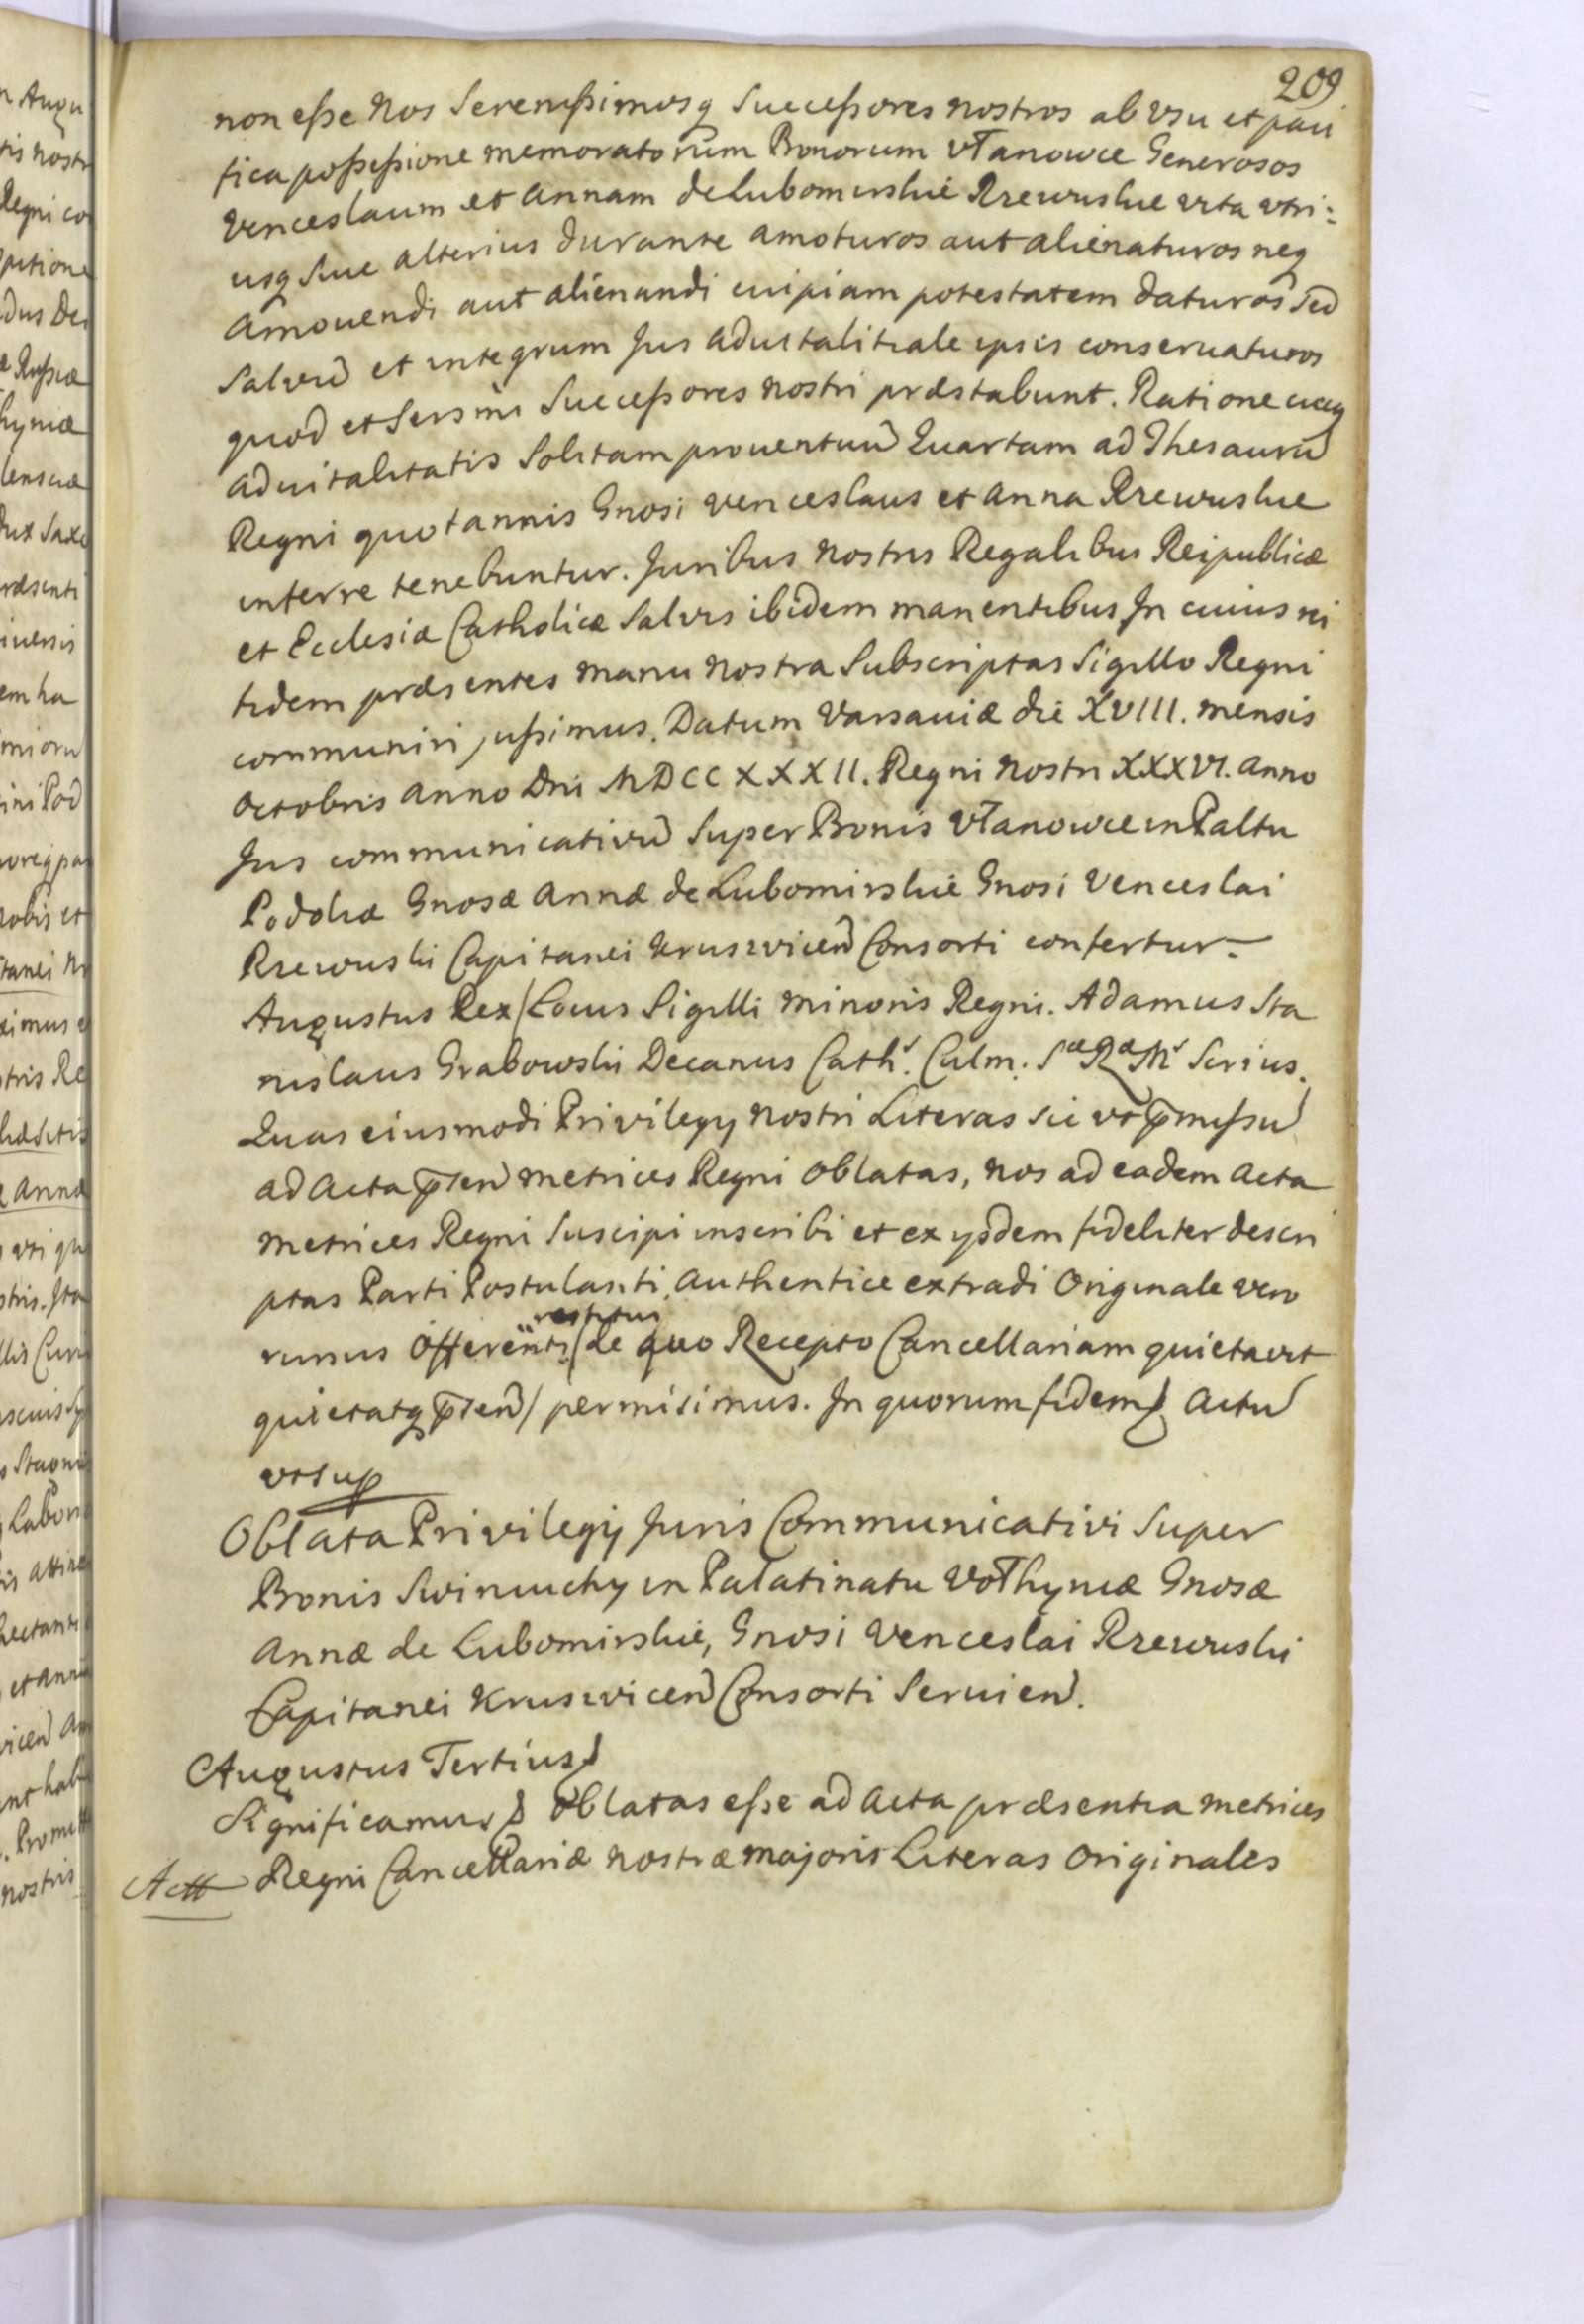 209
non esse Nos Serenissimosq Successores nostros ab Vsu et paci
fica possessione memoratorum Bonorum Vłanowce Generosos
Venceslaum et Annam de Lubomirskie Rzewuskie vita vtri:
usq Sive alterius durante amoturos aut alienaturos neq
Amouendi aut alienandi cuipiam potestatem daturos Sed
Salvũ et integrum Jus Aduitalitiale ipsis conseruaturos
quod et Sersmi Successores nostri præstabunt. Ratione cuiq
Aduitalitatis Solitam prouentuũ Quartam ad Thesaurũ
Regni quotannis Gnosi Venceslaus et Anna Rzewuskie
inferre tenebuntur. Juribus Nostris Regalibus Reipublicæ
et Ecclesiæ Catholicæ Salvis ibidem manentibus Jn cuius rei
fidem præsentes manu Nostra Subscriptas Sigillo Regni
communiri jussimus. Datum Varsauiæ die XVIII. mensis
Octobris Anno Dni MDCCXXXII. Regni Nostri XXXVI. anno
Jus communicativũ Super Bonis Vłanowce in Paltu
Podoliæ Gnosæ Annæ de Lubomirskie Gnosi Venceslai
Rzewuski Capitanei Kruszviceñ Consorti confertur-
Augustus Rex/Locus Sigilli minoris Regni. Adamus Sta
nislaus Grabowski Decanus Cath. Culm. S R M Scrius.
Quas eiusmodi Privilegy Nostri Literas sic vt pmissũ
ad Acta pñteñ Metrices Regni Oblatas, Nos ad eadem Acta
Metrices Regni Suscipi inscribi et ex ysdem fideliter descri
ptas Parti Postulanti Authentice extradi Originale vero
restitui
rursus Offerenti/de quo Recepto Cancellariam quietavit
quietatq pñteñ/ permisimus. Jn quorum fidem Actũ
vt sup
Oblata Privilegij Juris Communicativi Super
Bonis Swiniuchy in Palatinatu Vołhyniæ Gnosæ
Annæ de Lubomirskie, Gnosi Venceslai Rzewuski
Capitanei Kruszviceñ Consorti Seruieñ.
Augustus Tertius
Significamus Oblatas esse ad Acta præsentia Metrices
Regni Cancellariæ Nostræ majoris Literas Originales